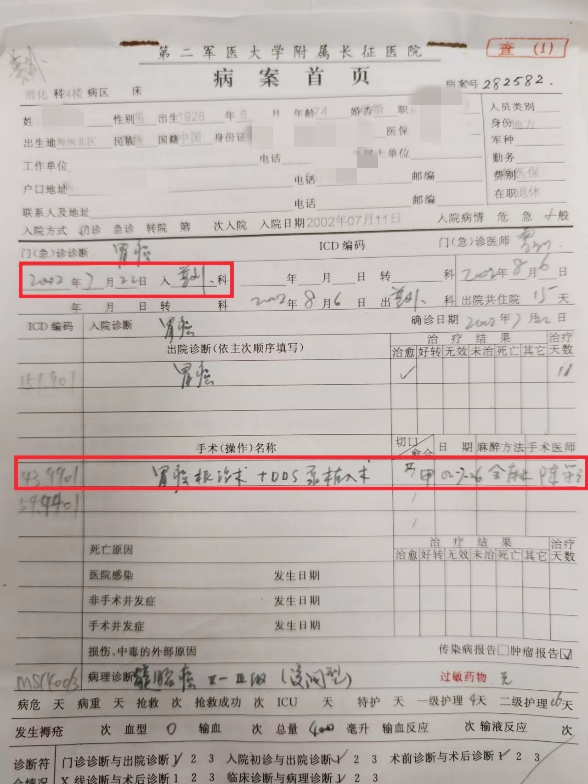 第二军医大学附属长征医院
查(1)
病案首页
病案号 282582.
消化 科 4楼 病区 床
姓 性别 出生1928年6月 年龄74 婚否 职
人员类别
出生地 河北区 民族 国籍 中国 身份证 医保
身份
军种
工作单位 电话 单位
勤务
户口地址 电话 邮编
费别 医保
联系人及地址 电话 邮编
在职 退休
入院方式 初诊 急诊 转院 第 次入院 入院日期2002年07月11日 入院病情 危 急 一般
门(急)诊诊断 胃癌 ICD 编码 门(急)诊医师
2002年7月22日 入 普外 科 年 月 日 转 科 2002年8月6日
年 月 日 转 科 2002年8月6日 出 普外 科 出院共住院 15天
ICD 编码 入院诊断 胃癌 确诊日期 2002年7月22日
出院诊断(依主次顺序填写) 治疗结果 治疗天数
治愈 好转 无效 未治 死亡 其它
151.901 胃癌 ✓
手术(操作)名称 切口 愈合 日期 麻醉方法 手术医师
43.9901 胃癌根治术+DDS泵植入术 甲 02-7-26 全麻
死亡原因 治疗结果 治疗天数
治愈 好转 无效 未治 死亡 其它
医院感染 发生日期
非手术并发症 发生日期
手术并发症 发生日期
损伤、中毒的外部原因 传染病报告□ 肿瘤报告☑
病理诊断 腺癌 II-III级 过敏药物 无
病危 天 病重 天 抢救 次 抢救成功 次 ICU 天 特护 天 一级护理 4天 二级护理 天
发生褥疮 次 血型 O 输血 次 总量 400 毫升 输血反应 次 输液反应 次
诊断符合情况 门诊诊断与出院诊断 1 2 3 入院初诊与出院诊断 1 2 3 术前诊断与术后诊断 1 2 3
X线诊断与术后诊断 1 2 3 临床诊断与病理诊断 1 2 3